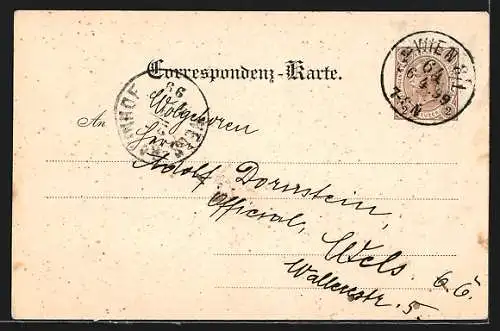 Correspondenz-Karte.
WIEN
64
6 4 99
7-8 N
WELS BAHNHOF
99
An
Wolgeboren
Herrn
Adolf Dornstein,
Official, Wels.
Wallerstr. 5.